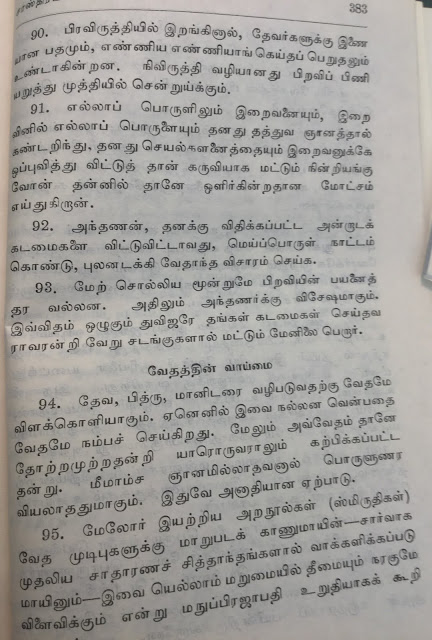 383
90. பிரவிருத்தியில் இறங்கினால், தேவர்களுக்கு இணை
யான பதமும், எண்ணிய எண்ணியாங் கெய்தப் பெறுதலும்
உண்டாகின்றன. நிவிருத்தி வழியானது பிறவிப் பிணி
யறுத்து முத்தியில் சென்றுய்க்கும்.
91. எல்லாப் பொருளிலும் இறைவனையும், இறை
வினில் எல்லாப் பொருளையும் தனது தத்துவ ஞானத்தால்
கண்டறிந்து, தனது செயல்களனைத்தையும் இறைவனுக்கே
ஒப்புவித்து விட்டுத் தான் கருவியாக மட்டும் நின்றியங்கு
வோன் தன்னில் தானே ஒளிர்கின்றதான மோட்சம்
எய்துகிறான்.
92. அந்தணன், தனக்கு விதிக்கப்பட்ட அன்றாடக்
கடமைகளை விட்டுவிட்டாவது, மெய்ப்பொருள் நாட்டம்
கொண்டு, புலனடக்கி வேதாந்த விசாரம் செய்க.
93. மேற் சொல்லிய மூன்றுமே பிறவியின் பயனைத்
தர வல்லன. அதிலும் அந்தணர்க்கு விசேஷமாகும்.
இவ்விதம் ஒழுகும் துவிஜரே தங்கள் கடமைகள் செய்தவ
ராவரன்றி வேறு சடங்குகளால் மட்டும் மேனிலை பெறார்.
வேதத்தின் வாய்மை
94. தேவ, பித்ரு, மானிடரை வழிபடுவதற்கு வேதமே
விளக்கொளியாகும். ஏனெனில் இவை நல்லன வென்பதை
வேதமே நம்பச் செய்கிறது. மேலும் அவ்வேதம் தானே
தோற்றமுற்றதன்றி யாரொருவராலும் கற்பிக்கப்பட்ட
தன்று. மீமாம்ச ஞானமில்லாதவனால் பொருளுணர
வியலாததுமாகும். இதுவே அனாதியான ஏற்பாடு.
95. மேலோர் இயற்றிய அறநூல்கள் (ஸ்மிருதிகள்)
வேத முடிபுகளுக்கு மாறுபடக் காணுமாயின்—சார்வாக
முதலிய சாதாரணச் சித்தாந்தங்களால் வாக்களிக்கப்படு
மாயினும்—இவை யெல்லாம் மறுமையில் தீமையும் நரகுமே
விளைவிக்கும் என்று மநுப்பிரஜாபதி உறுதியாகக் கூறி